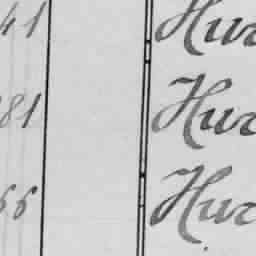 41 Hur
81 Hur
66 Hur